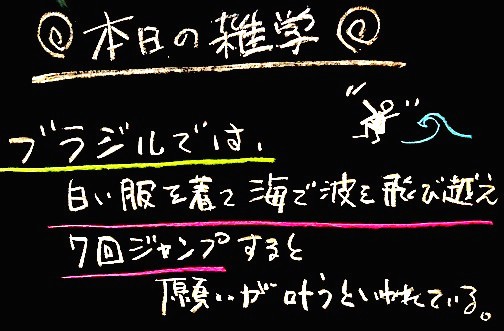 本日の雑学
ブラジルでは、
白い服を着て海で波を飛び越え
7回ジャンプすると
願いが叶うといわれている。